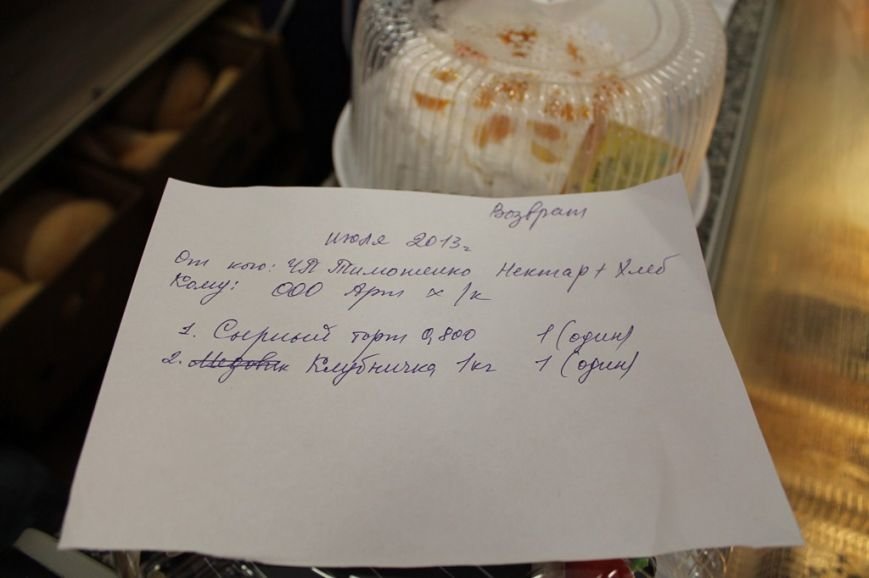 Возврат
июля 2013г
От кого: ЧП Тимошенко Нектар + Хлеб
Кому: ООО Арт х/к
1. Сырный торт 0,800 1 (один)
2. Медовик Клубничка 1кг 1 (один)